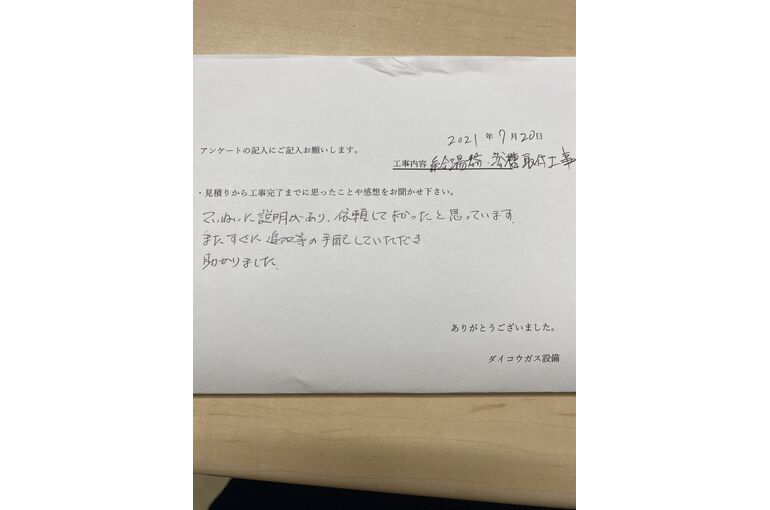 2021 年 7 月 20 日
アンケートの記入にご記入お願いします。
工事内容 給湯器・ 取付工事
・見積りから工事完了までに思ったことや感想をお聞かせ下さい。
ていねいに説明があり、依頼してよかったと思っています。
またすぐに追加等の手配していただき
助かりました。
ありがとうございました。
ダイコウガス設備